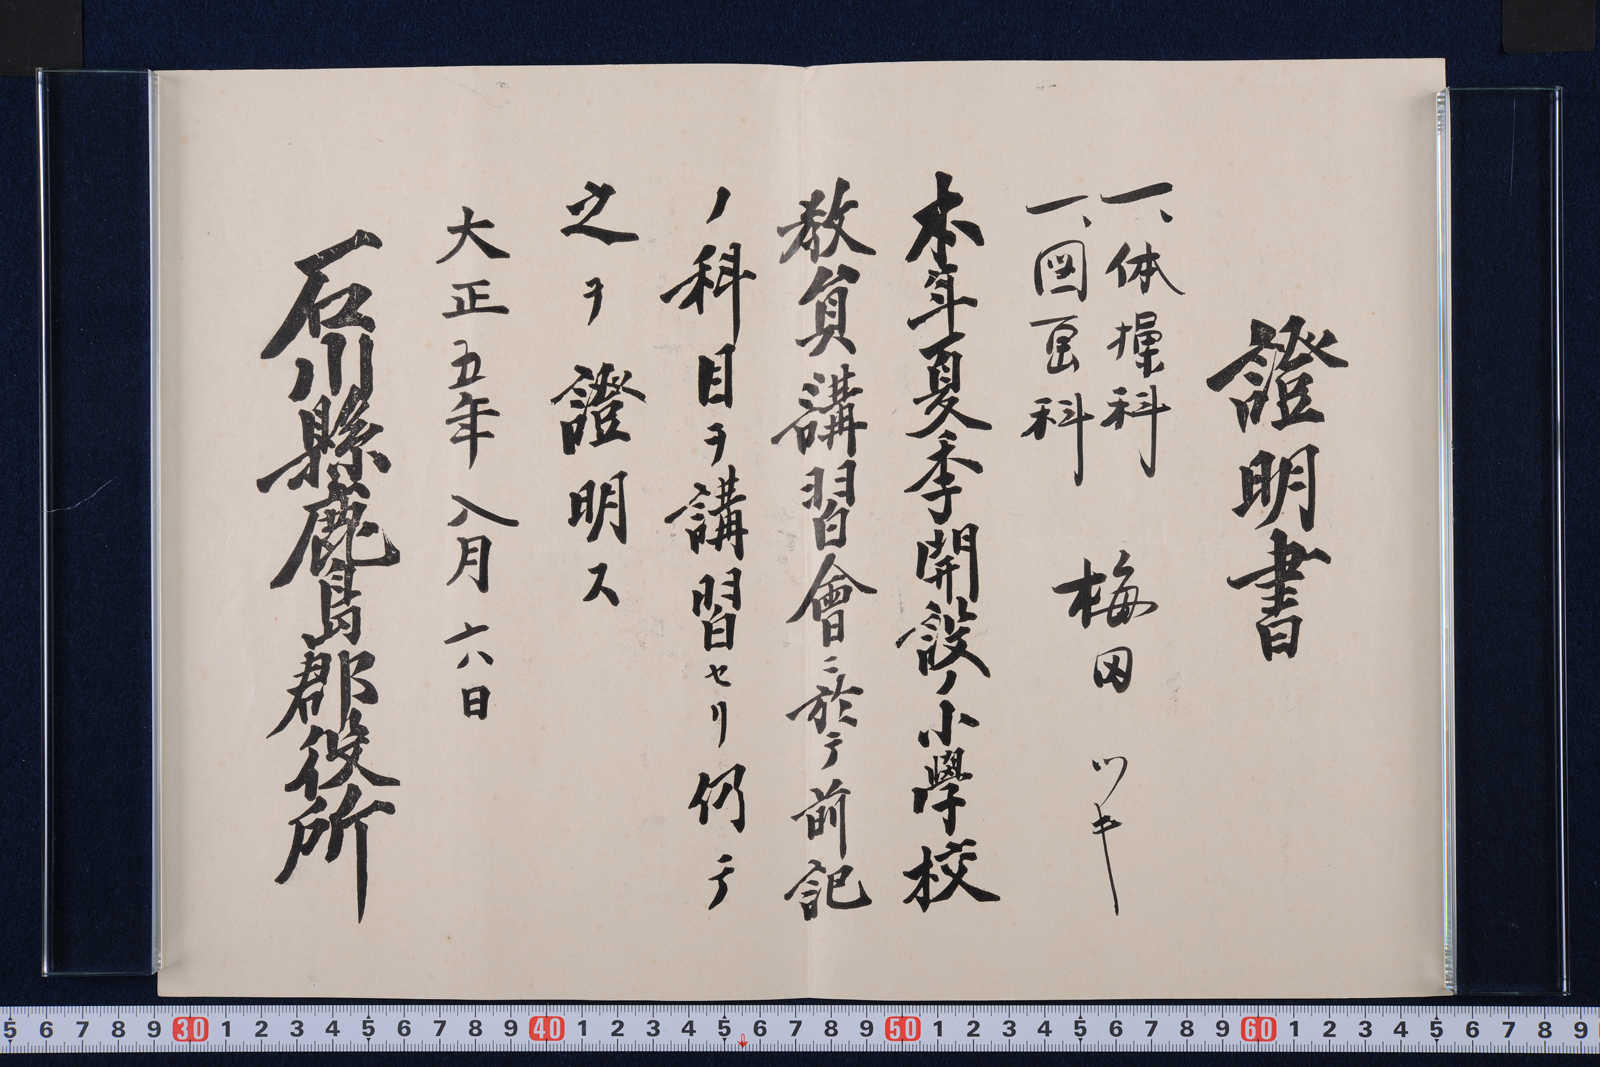 證明書
一、体操科
一、図画科
梅田ツキ
本年夏季開設ノ小學校
教員講習會ニ於テ前記
ノ科目ヲ講習セリ仍テ
之ヲ證明ス
大正五年八月六日
石川縣鹿島郡役所
5 6 7 8 9 30 1 2 3 4 5 6 7 8 9 40 1 2 3 4 5 6 7 8 9 50 1 2 3 4 5 6 7 8 9 60 1 2 3 4 5 6 7 8 9